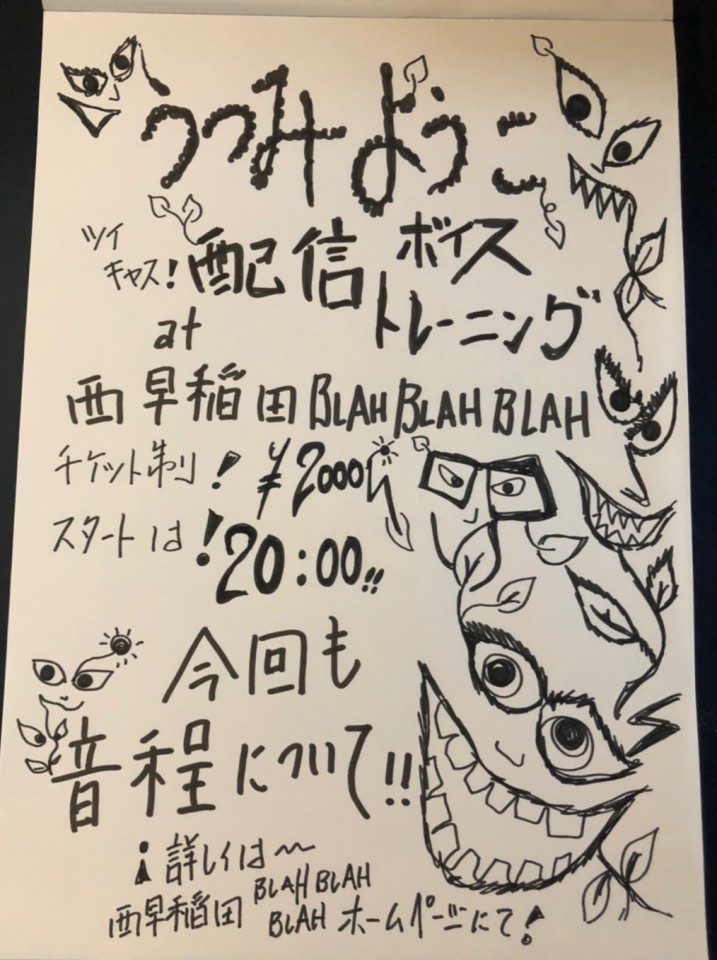 うつみようこ
ツイキャス! 配信 ボイストレーニング
at
西早稲田 BLAH BLAH BLAH
チケット制! ¥2000
スタートは! 20:00!!
今回も
音程について!!
詳しくは〜
西早稲田 BLAH BLAH BLAH ホームページにて!